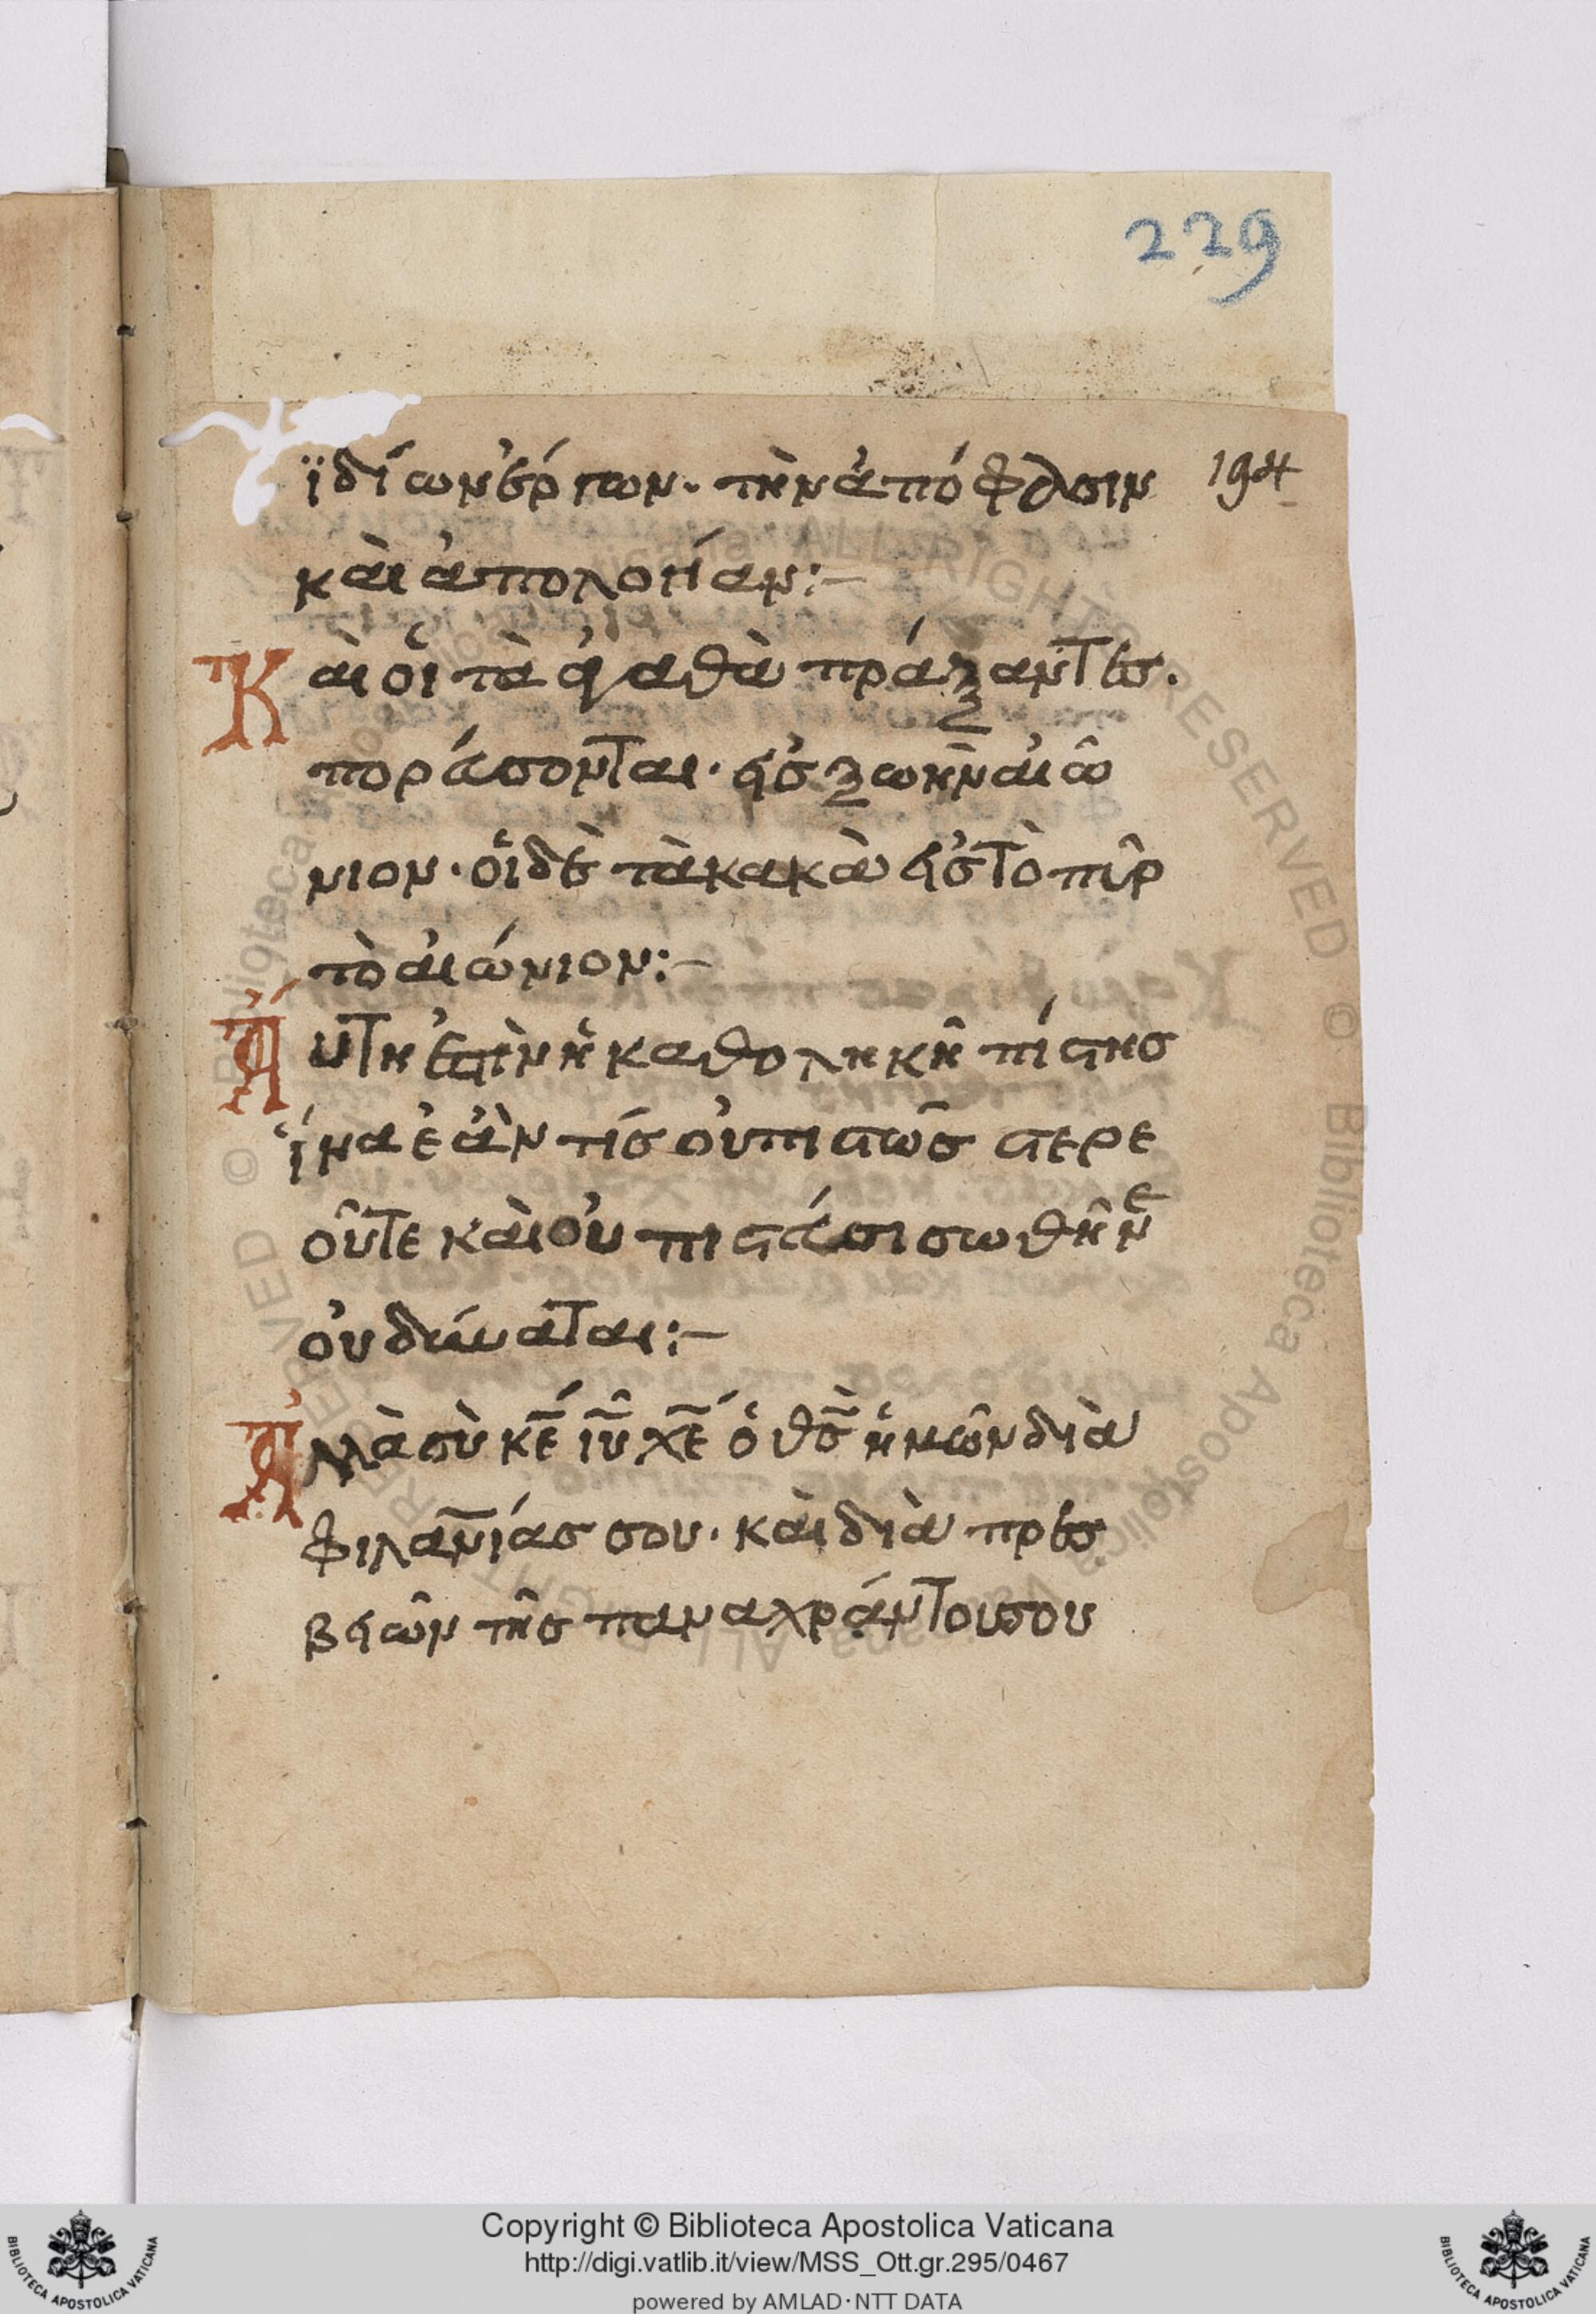 229
ϊδίων ἔργων· τὴν ἀπόφασιν 194
καὶ ἀπολογίαν:–
Καὶ οἱ τὰ ἀγαθὰ πράξαντες.
πορεύσονται· εἰς ζωὴν αἰῶ
νιον· οἱ δὲ τὰ κακὰ εἰς τὸ πῦρ
τὸ αἰώνιον:–
Ἅυτη ἐστὶν ἡ καθολικὴ πίστης
ἵνα ἐὰν τίς οὐ πιστῶς στερε
οῦτε καὶ οὐ πιστεύσι σωθῆνε
οὐ δύναται:–
Ἀλλὰ σὺ κε̅ ιυ̅ χε̅ ὁ θς̅ ἡμῶν διὰ
φιλανι̅ας σου· καὶ διὰ πρεσ
βειῶν τῆς παναχράντου σου
Copyright © Biblioteca Apostolica Vaticana
http://digi.vatlib.it/view/MSS_Ott.gr.295/0467
powered by AMLAD·NTT DATA
BIBLIOTECA APOSTOLICA VATICANA
BIBLIOTECA APOSTOLICA VATICANA